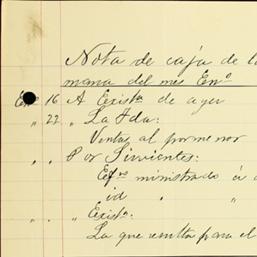 Nota de caja de la
mana del mes En°
En° 16 A Exista de ayer
" 22 " La Fda:
Ventas al pormenor
" " Por Sirvientes:
Efvos ministrado á
id "
" " " Exista:
La que resulta para el